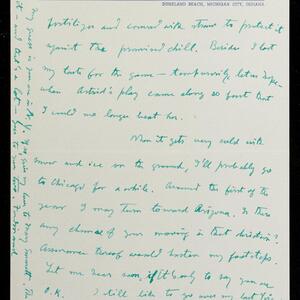 DUNELAND BEACH, MICHIGAN CITY, INDIANA
fertilizer and covered with straw to protect it
against the promised chill. Besides I lost
my taste for the game — temporarily, let us hope —
when Astrid's play came along so fast that
I could no longer beat her.
When it gets very cold with
snow and ice on the ground, I'll probably go
to Chicago for a while. Around the first of the
year I may turn toward Arizona. Is there
any chance of your moving in that direction?
Assurance thereof would hasten my footsteps.
Let me hear soon, if it's only to say you are
O.K. I still like to go over my last
My guess is you are in N.Y. If so, give my love to